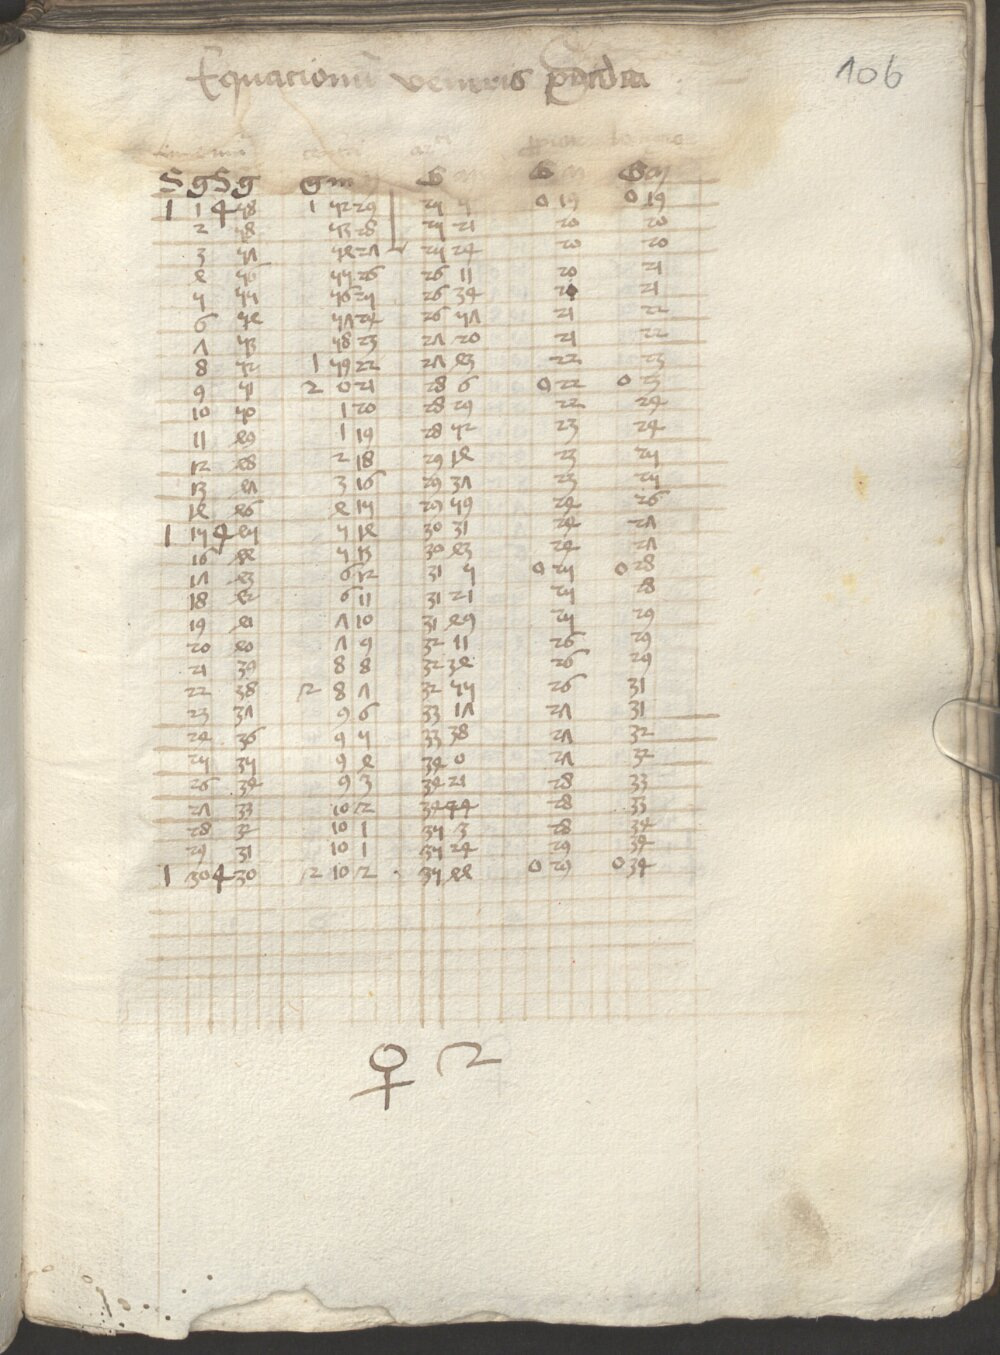 Equacionu veneris
106
S g S g g m G G G m
1 1 4 59 1 52 29 25 5 0 19 0 19
2 58 53 28 25 21 20 20
3 57 54 27 25 24 20 20
4 56 55 26 26 11 20 21
5 55 56 25 26 34 21
6 54 57 24 26 57 21 22
7 53 58 23 27 20 21 22
8 52 1 59 22 27 43 22 23
9 51 2 0 21 28 6 0 22 0 23
10 50 1 20 28 29 22 24
11 49 1 19 28 52 23 24
12 48 2 18 29 14 23 25
13 47 3 16 29 37 23 25
14 46 4 15 29 59 24 26
1 15 4 45 5 14 30 31 24 27
16 44 5 13 30 43 24 27
17 43 6 12 31 5 0 25 0 28
18 42 6 11 31 21 25 28
19 41 7 10 31 49 25 29
20 40 7 9 32 11 26 29
21 39 8 8 32 34 26 29
22 38 2 8 7 32 55 26 31
23 37 9 6 33 17 27 31
24 36 9 5 33 38 27 32
25 35 9 4 34 0 27 32
26 34 9 3 34 21 28 33
27 33 10 2 34 44 28 33
28 32 10 1 35 3 28 34
29 31 10 1 35 24 29 34
1 30 4 30 2 10 2 35 44 0 29 0 34
♀ 2